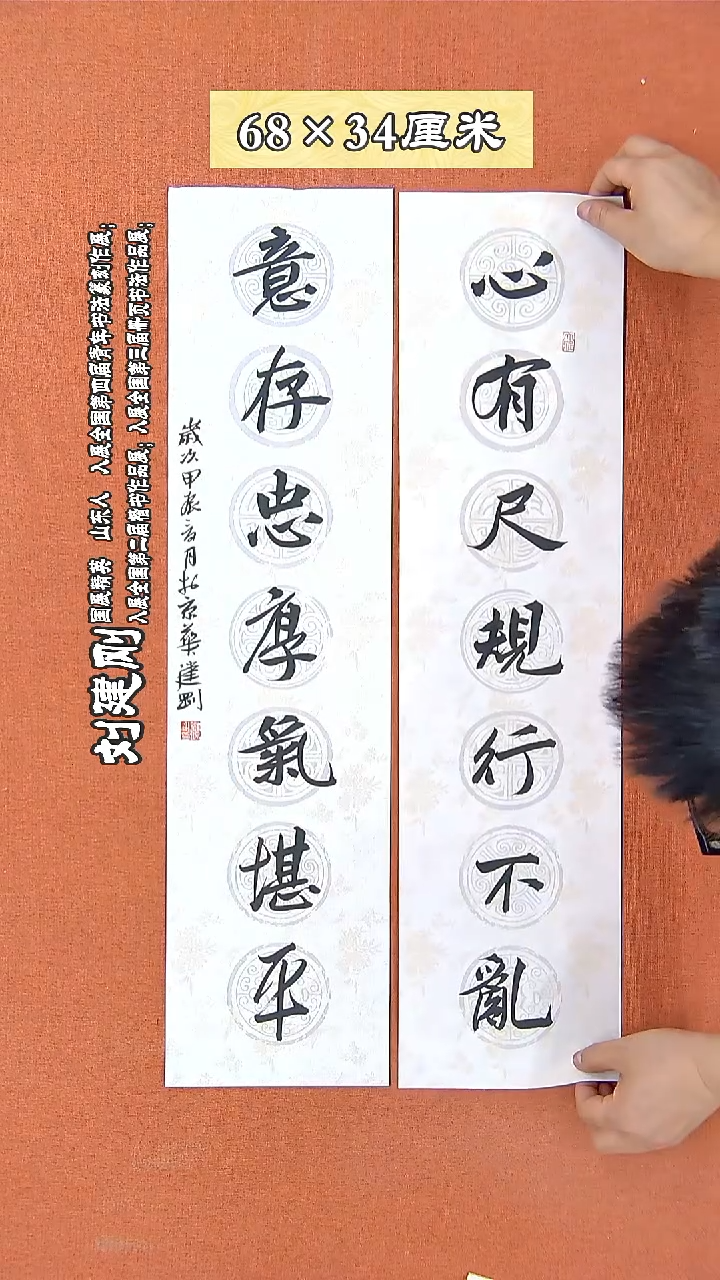 68×34厘米
心有尺規行不亂
意存忠厚氣堪平
歲次甲辰方月於京華建剛
刘建刚
国展精英 山东人 入展全国第四届青年书法篆刻作展；
入展全国第二届楷书作品展；入展全国第三届册页书法作品展；